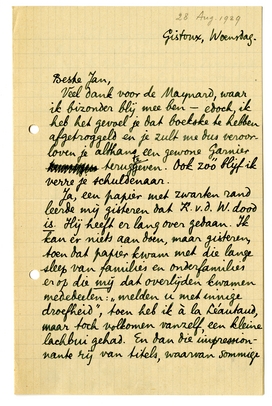 28 Aug. 1929
Gistoux, Woensdag.
Beste Jan,
Veel dank voor de Maynard, waar
ik bizonder blij mee ben – edoch, ik
heb het gevoel je dat boekske te hebben
afgetroggeld en je zult me dus veroor-
loven je althans een gewone Garnier
terug te geven. Ook zoo blijf ik
verre je schuldenaar.
Ja, een papier met zwarten rand
leerde mij gisteren dat R.v.d.W. dood
is. Hij heeft er lang over gedaan. Ik
kan er niets aan doen, maar gisteren,
toen dat papier kwam met die lange
sleep van families en onderfamilies
erop die mij dat overlijden kwamen
mededeelen: „melden u met innige
droefheid", toen heb ik à la Léautaud,
maar toch volkomen vanzelf, een kleine
lachbui gehad. En dan die impression-
nante rij van titels, waarvan sommige